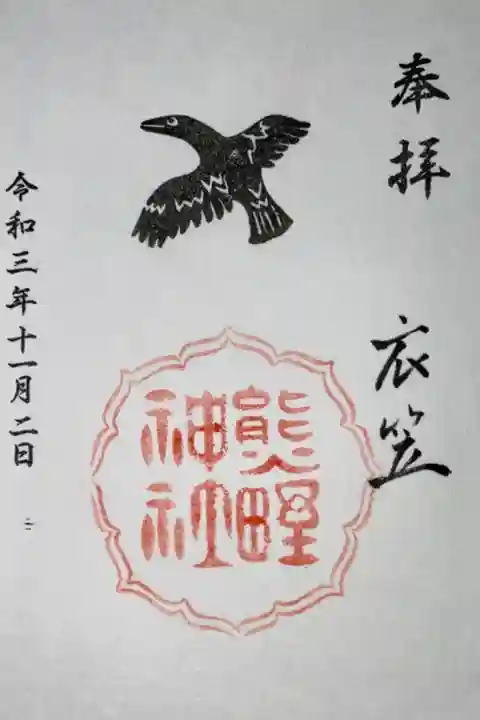 奉拝
衣笠
熊野
神社
令和三年十一月二日